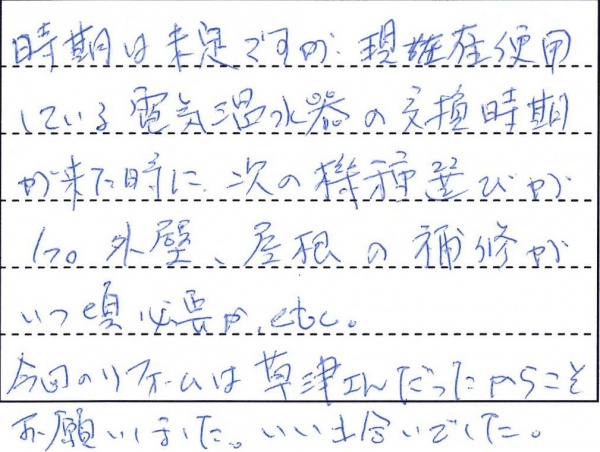 時期は未定ですが、現在使用
している電気温水器の交換時期
が来た時に、次の機種選びが
1つ。外壁、屋根の補修が
いつ頃必要か、etc。
今回のリフォームは草津さんだったからこそ
お願いしました。いい出合いでした。